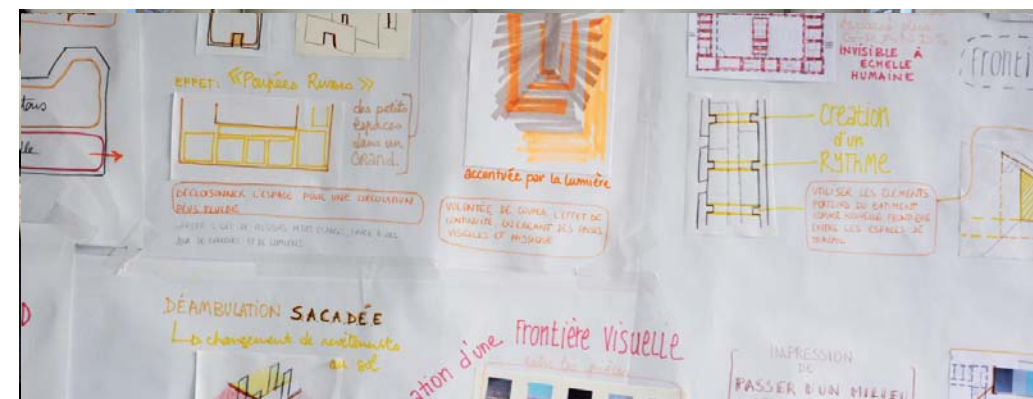 tous
lle
EFFET: «Poupées Russes»
des petits
Espaces
dans un
Grand.
DÉCLOISONNER L'ESPACE POUR UNE CIRCULATION
PLUS FLUIDE
accentuée par la lumière
VOLONTÉE DE COUPER L'EFFET DE
CONTINUITÉ, EN CRÉANT DES PAUSES
VISUELLES ET PHYSIQUE
GRANDS
INVISIBLE À
ECHELLE
HUMAINE
Fronti
Creation
d'un
RYTHME
UTILISER LES ÉLÉMENTS
PORTEURS DU BATIMENT
COMME NOUVELLE FRONTIÈRE
ENTRE LES ESPACES DE
TRAVAIL
DÉAMBULATION SACADÉE
changement de revêtements
au sol
ation d'une Frontière Visuelle
IMPRESSION
DE
PASSER D'UN MILIEU